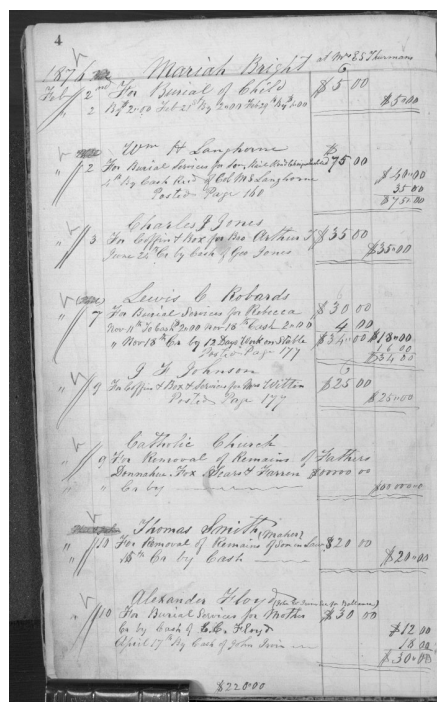 4
Mariah Bright at Mrs E S Thurmans
1876
Feb 2nd For Burial of Child $5.00
" 2 By $2.00 Feb 21st By 2.00 Feb 29th By $1.00 $5.00
Wm H Langhorne
" 2 For Burial Services for Son, 75 00
4th By Cash Recd of Col M S Langhorne $40.00
Posted Page 160 35 00
$75.00
Charles J Jones
" 3 For Coffin & Box for Bro Arthur J $35 00
June 24 Cr by Cash of Geo Jones $35.00
Lewis C Robards
" 7 For Burial Services for Rebecca $30 00
Nov 11th To Cash 2.00 Nov 18th Cash 2.00 4 00
" Nov 18th Cr by 12 Days Work on Stable $34.00 $18.00
Posted Page 177 16 00
$34 00
J F Johnson
" 9 For Coffin & Box & Services for Mrs Witten $25 00
Posted Page 177 $25.00
Catholic Church
" 9 For Removal of Remains of Fathers
Denneher, Fox, Sears & Farren $0000 00
" " Cr by $0000.00
Thomas Smith (Maher)
" 10 For Removal of Remains of Son in Law $20 00
" 15th Cr by Cash $20.00
Alexander Floyd
" 10 For Burial Services for Mother $30 00
Cr by Cash of C.C. Floyd $12 00
April 17th By Cash of John Irvin 18.00
$30.00
$220.00